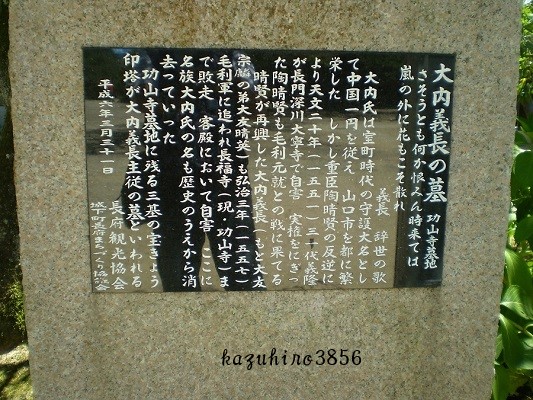 大内義長の墓 功山寺墓地
さそうとも何か恨みん時来ては
嵐の外に花もこそ散れ
義長 辞世の歌
大内氏は室町時代の守護大名とし
て中国一円を従え 山口市を都に繁
栄した しかし重臣陶晴賢の反逆に
より天文二十年(一五五一)三十一代義隆
が長門深川大寧寺で自害 実権をにぎっ
た陶晴賢も毛利元就との戦に果てる
晴賢が再興した大内義長(もと大友
宗麟の弟大友晴英)も弘治三年(一五五七)
毛利軍に追われ長福寺(現・功山寺)ま
で敗走 客殿において自害 ここに
名族大内氏の名も歴史のうえから消
去っていった
功山寺墓地に残る三基の宝きょう
印塔が大内義長主従の墓といわれる
平成六年三月三十一日
長府観光協会
城下町長府まちづくり協議会
kazuhiro3856